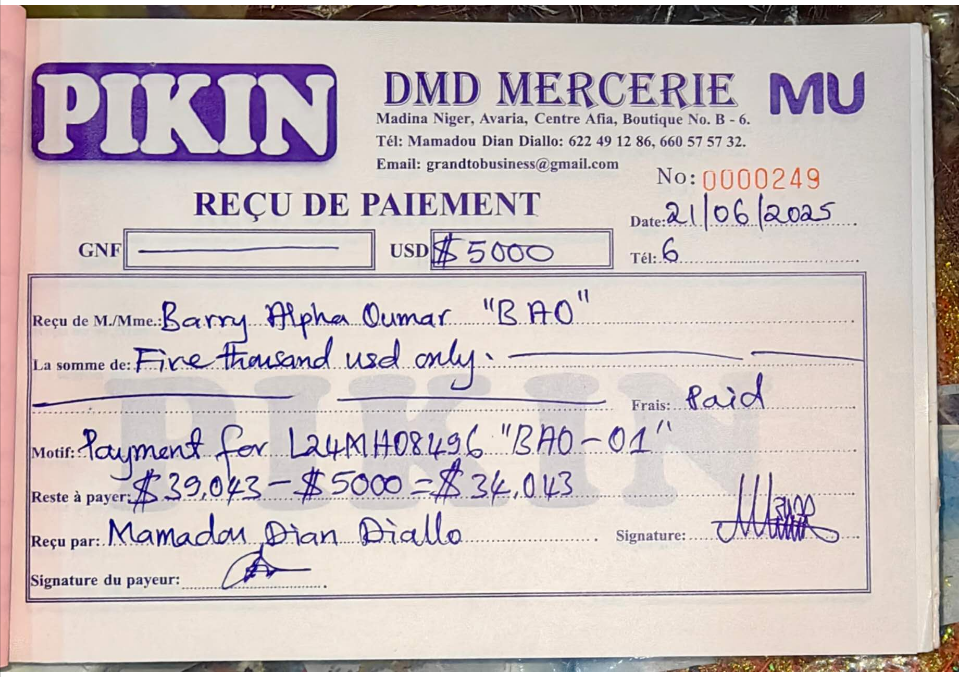 PIKIN
DMD MERCERIE MU
Madina Niger, Avaria, Centre Afia, Boutique No. B - 6.
Tél: Mamadou Dian Diallo: 622 49 12 86, 660 57 57 32.
Email: grandtobusiness@gmail.com
No: 0000249
REÇU DE PAIEMENT
Date: 21/06/2025
GNF USD $5000
Tél: 6
Reçu de M./Mme.: Barry Alpha Oumar "BAO"
La somme de: Five thousand usd only.
Frais: Paid
Motif: Payment for L24MH08496 "BAO-01"
Reste à payer: $39,043-$5000=$34,043
Reçu par: Mamadou Dian Diallo Signature:
Signature du payeur:
PIKIN